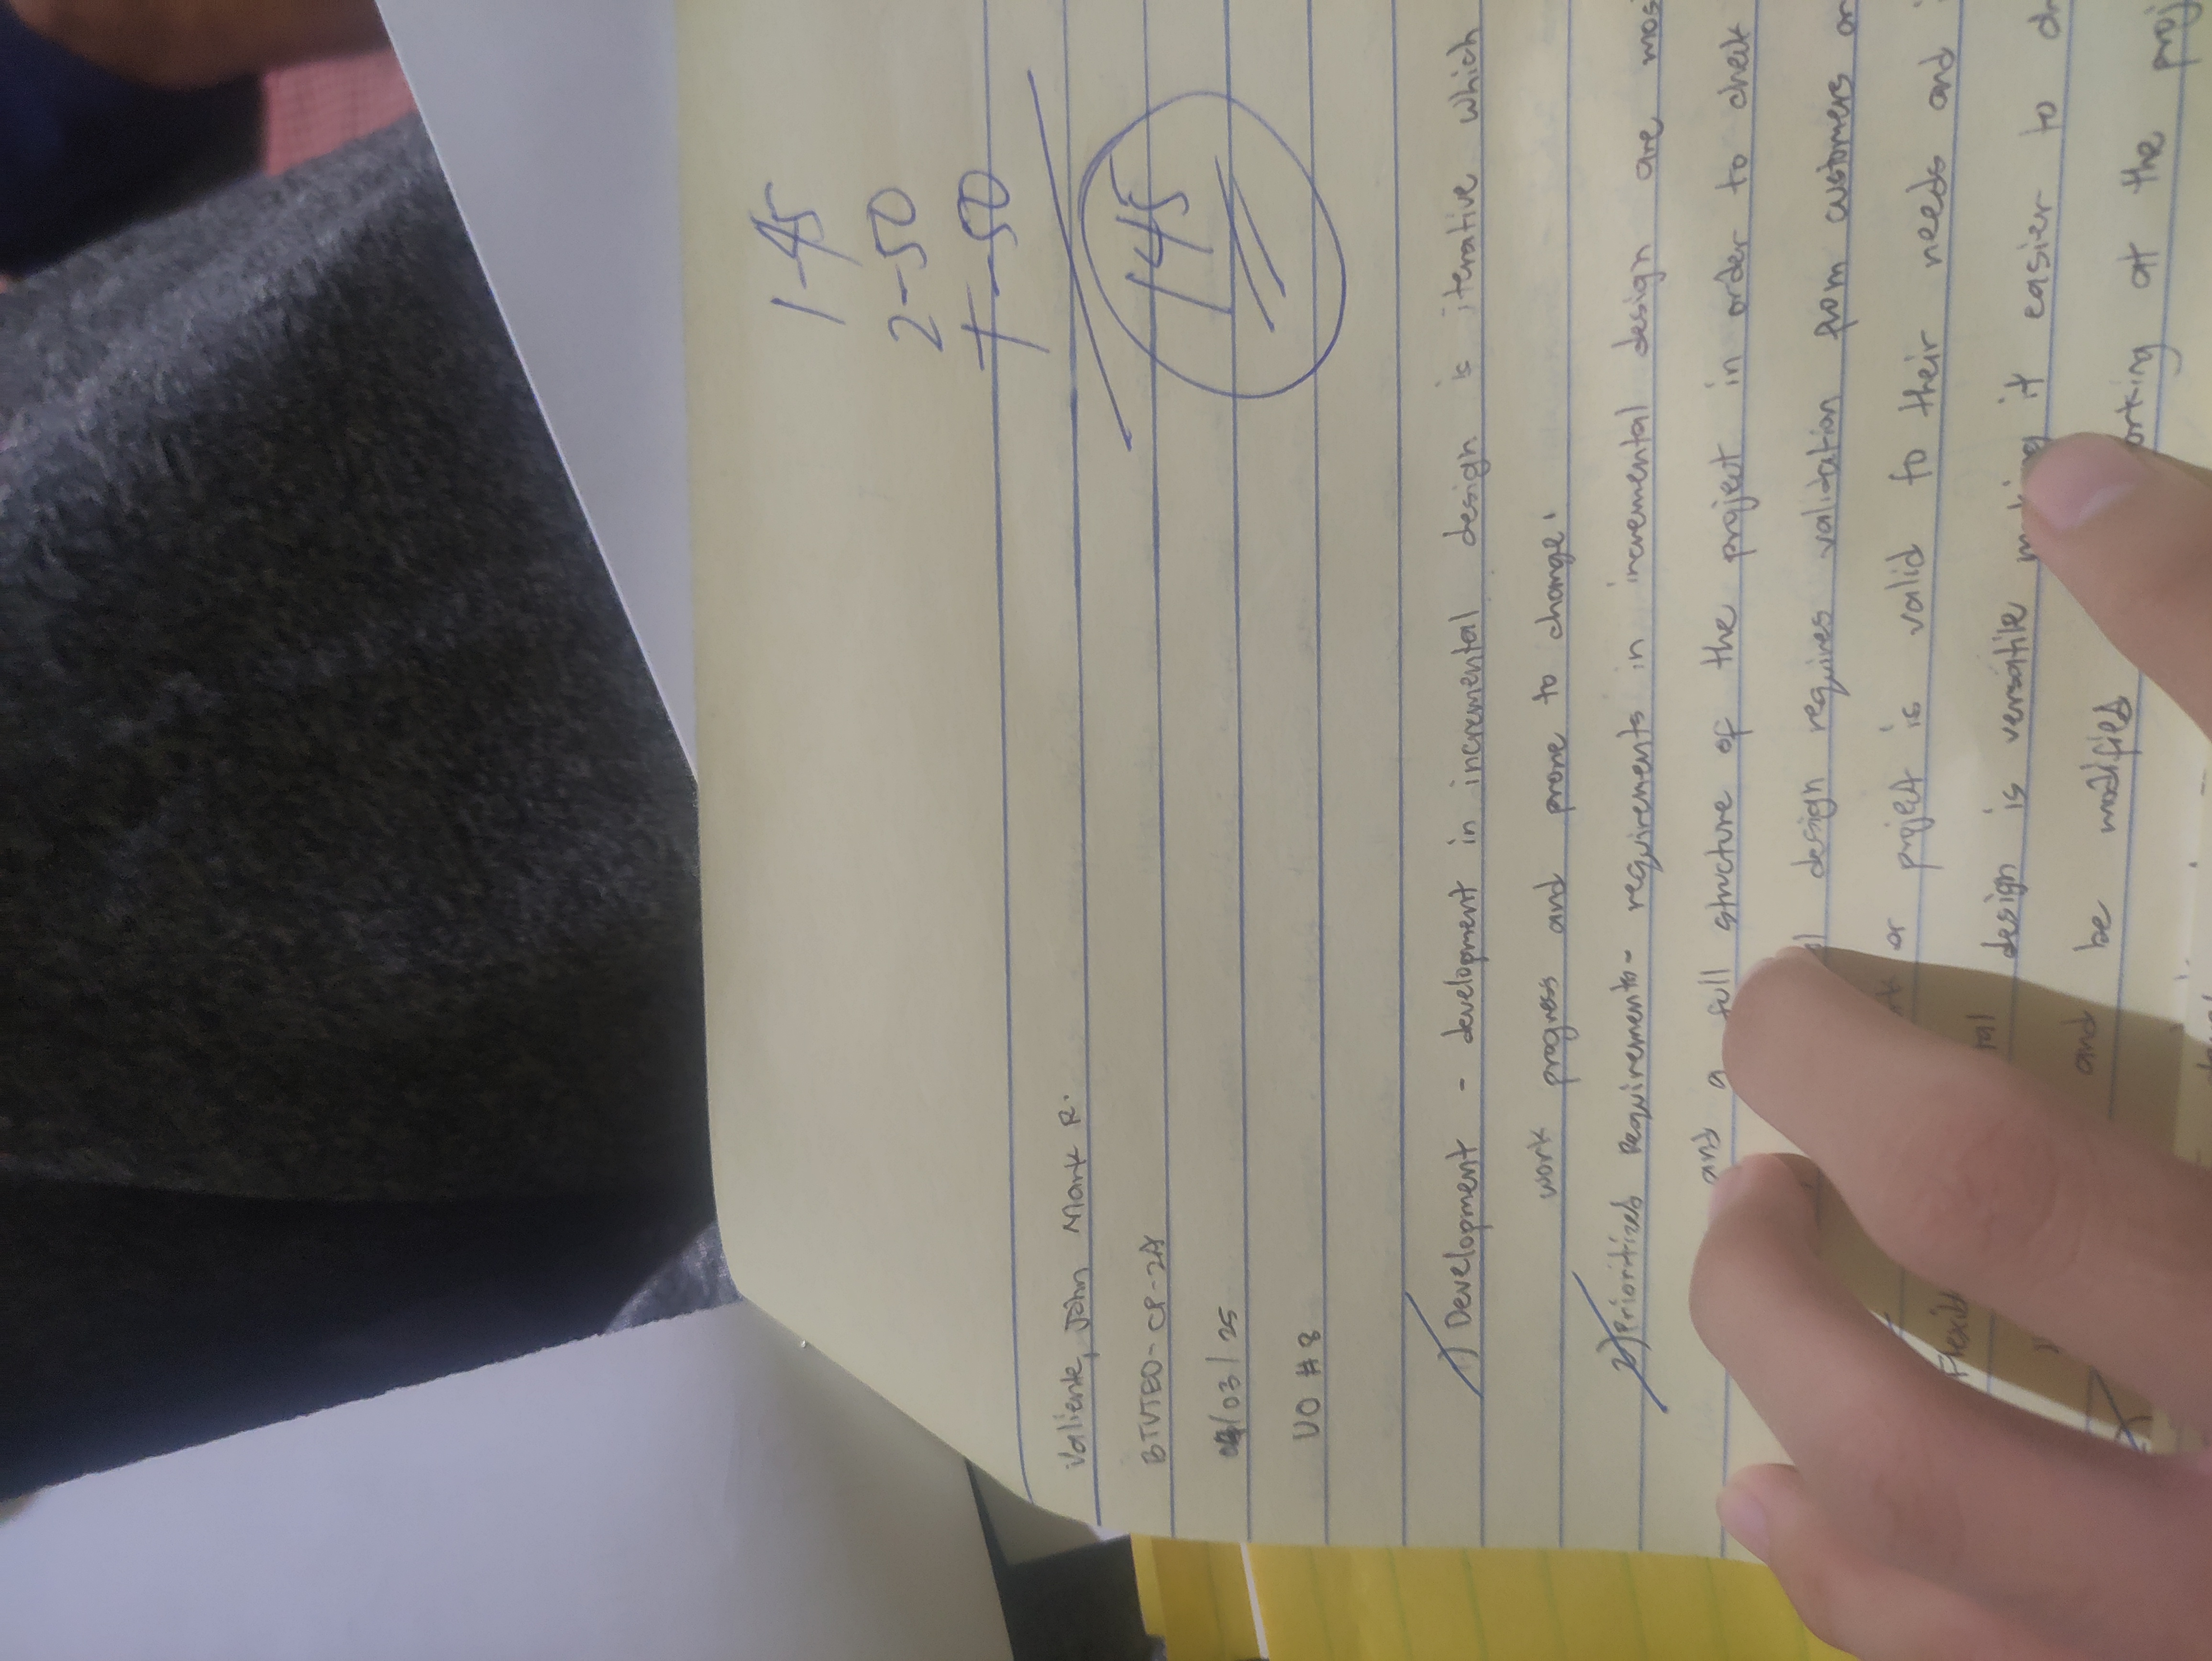 1-45
2-50
T-50
145
Valiente, John Mark R.
BTVTED-CP-2A
/03/25
UO #8
1) Development - development in incremental design is iterative which
work progress and prone to change.
2) Prioritized Requirements- requirements in incremental design are mos
and a full structure of the project in order to check
design requires validation from customers or
or project is valid to their needs and
Flexib design is versatile making it easier to
and be modified orking at the proj